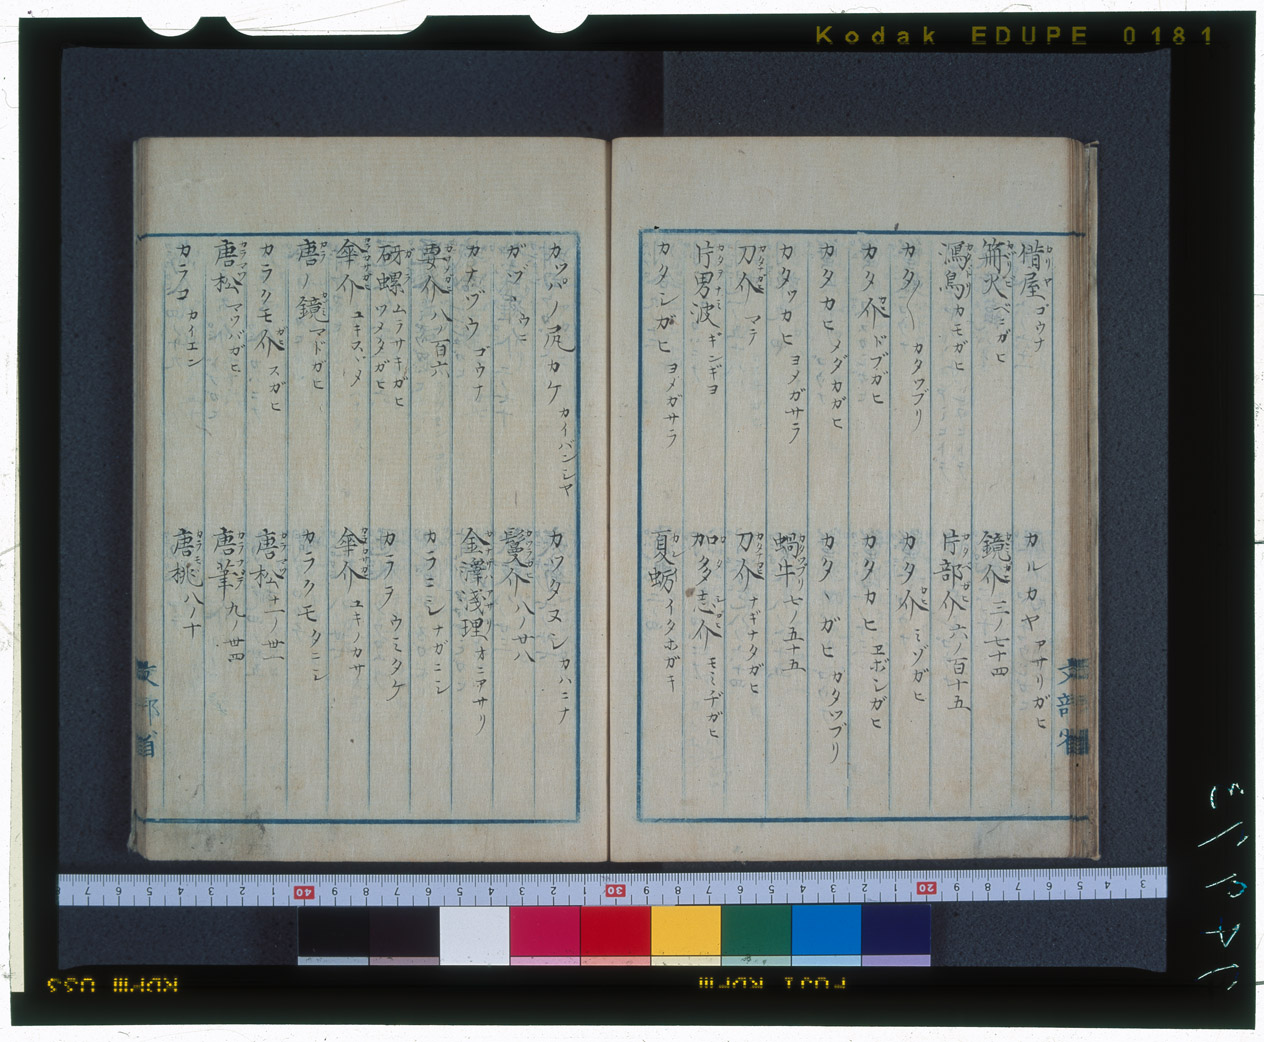 Kodak EDUPE 0181
借屋 ゴウナ
カルカヤ アサリガヒ
ベニガヒ
鏡介 三ノ七十四
カモガヒ
片部介 六ノ百十五
カタ〱 カタツブリ
カタ介 ミゾガヒ
カタ介 ドブガヒ
カタカヒ ヱボシガヒ
カタカヒ メダカガヒ
カタヽガヒ カタツブリ
カタツカヒ ヨメガサラ
蝸牛 七ノ五十五
刀介 マテ
刀介 ナギナタガヒ
片男波 ギンギヨ
加多志介 モミヂガヒ
カタシガヒ ヨメガサラ
夏蛎 イタホガキ
文部省
カツパノ尻カケ カイバンシヤ
カツタヌシ カハニナ
ガヅヽ ウニ
鬘介 八ノ廿八
カナヅウ ゴウナ
金澤淺理 オニアサリ
要介 八ノ百六
カラニシ ナガニシ
砑螺 ムラサキガヒ ツメタガヒ
カラヲ ウミタケ
傘介 ユキスヾメ
傘介 ユキノカサ
唐ノ鏡 マドガヒ
カラクモタニシ
カラクモ介 スガヒ
唐松 十一ノ廿一
唐松 マツバガヒ
唐筆 九ノ廿四
カラコ カイエン
唐桃 八ノ十
文部省
FUJI RDPIII
RDPIII 033